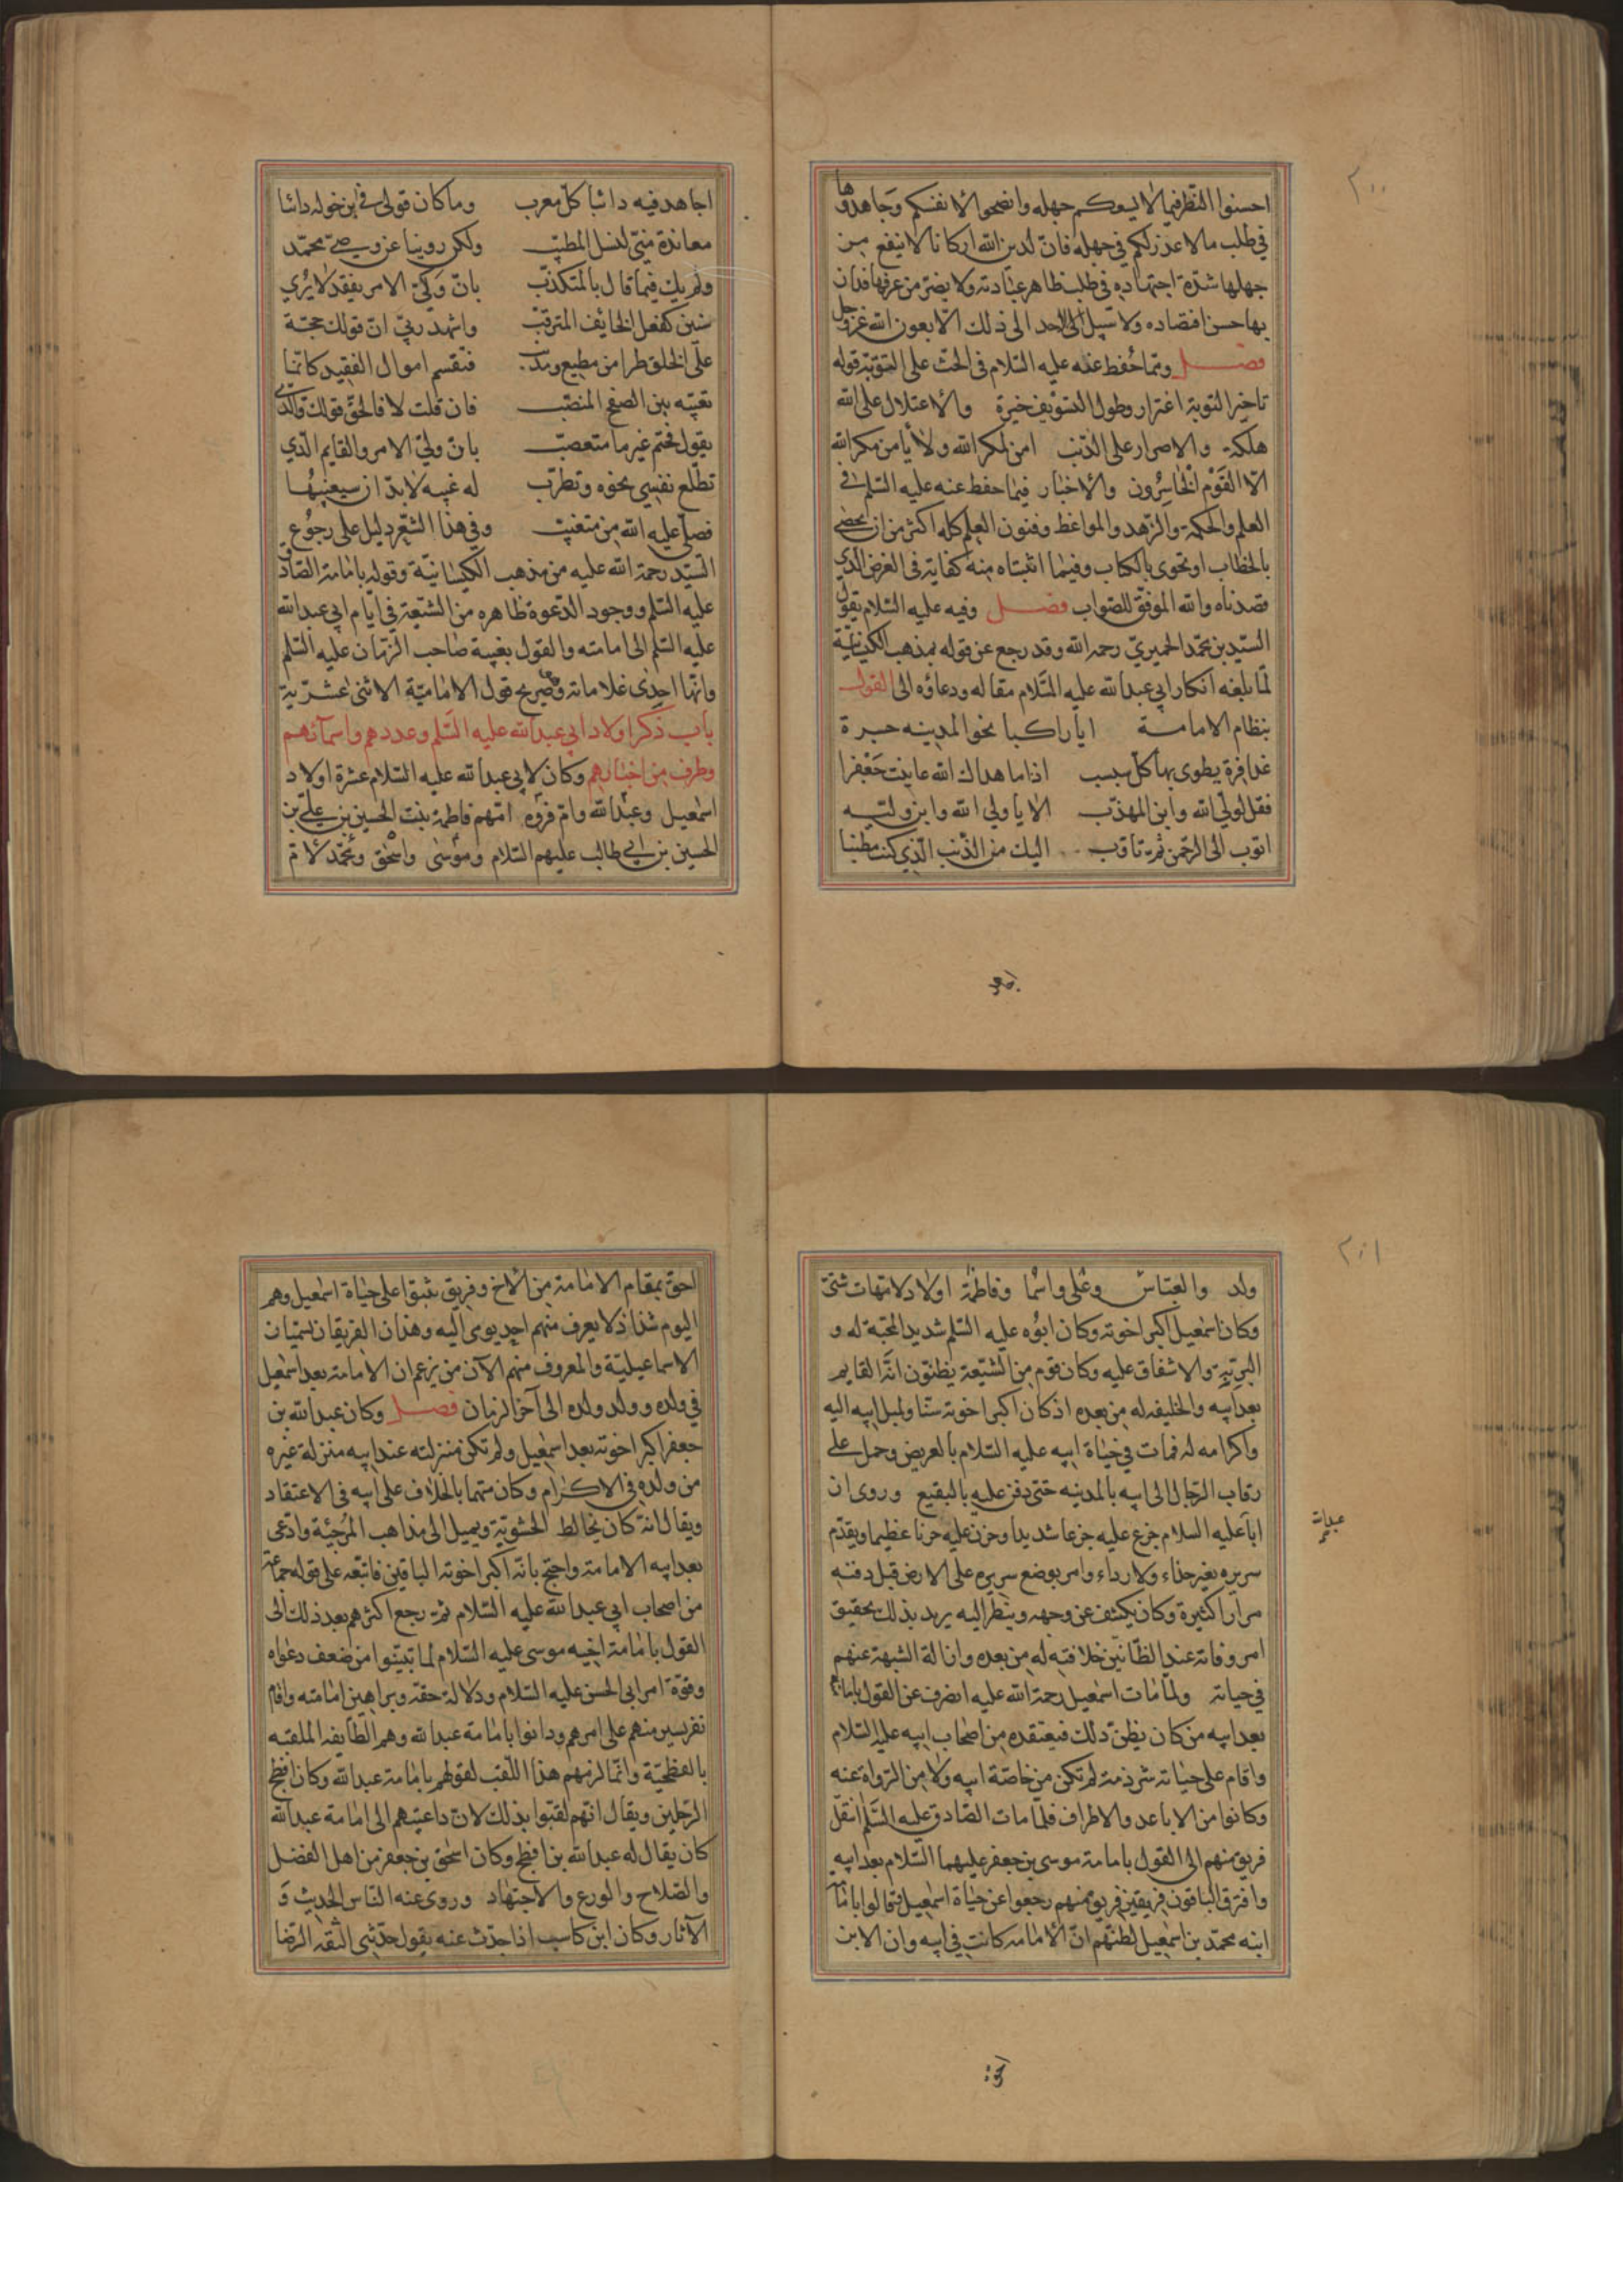 ٢٠٠
احسنوا النظر فيما لا يسعكم جهله وانصحوا لانفسكم وجاهدوها
في طلب ما لا عذر لكم في جهله فان لدين الله اركانا لا ينفع من
جهلها شدة اجتهاده في طلب ظاهر عبادته ولا يضر من عرفها فدان
بها حسن اقتصاده ولا سبيل الى احد الى ذلك الا بعون الله عز وجل
فصل ومما حفظ عنه عليه السلام في الحث على التوبة قوله
تاخير التوبة اغترار وطول التسويف حيرة والاعتلال على الله
هلكة والاصرار على الذنب امن لمكر الله ولا يأمن مكر الله
الا القوم الخاسرون والاخبار فيما حفظ عنه عليه السلم في
العلم والحكمة والزهد والمواعظ وفنون العلم كله اكثر من ان تحصى
بالخطاب او تحوى بالكتاب وفيما اثبتناه منه كفاية في الغرض الذي
قصدناه والله الموفق للصواب فصل وفيه عليه السلام يقول
السيد بن محمد الحميري رحمه الله وقد رجع عن قوله بمذهب الكيسانية
لما بلغه انكار ابي عبد الله عليه السلام مقاله ودعاؤه الى القول
بنظام الامامة ايا راكبا نحو المدينه جسرة
عذافرة يطوى بها كل سبسب اذا ما هداك الله عاينت جعفرا
فقل لولي الله وابن المهذب الا يا ولي الله وابن وليه
اتوب الى الرحمن ثم تاوب اليك من الذنب الذي كنت مطنبا
اجاهد فيه دائبا كل معرب وما كان قولى في ابن خوله دائبا
معاندة مني لنسل المطيب ولكن روينا عن وصي محمد
ولم يك فيما قال بالمتكذب بان ولي الامر يفقد لا يرى
سنين كفعل الخايف المترقب واشهد ربي ان قولك حجة
على الخلق طرا من مطيع ومذنب فتقسم اموال الفقيد كانما
تغيبه بين الصفيح المنصب فان قلت لا فالحق قولك والذي
يقول فحتم غير ما متعصب بان ولي الامر والقايم الذي
تطلع نفسي نحوه وتطرب له غيبه لا بد ان سيغيبها
فصلى عليه الله من متغيب وفي هذا الشعر دليل على رجوع
السيد رحمة الله عليه من مذهب الكيسانية وقوله بامامة الصادق
عليه السلم ووجود الدعوة ظاهره من الشيعة في ايام ابي عبد الله
عليه السلم الى امامته والقول بغيبة صاحب الزمان عليه السلم
وانها احدى علاماته وهو صريح قول الامامية الاثنى عشرية
باب ذكر اولاد ابي عبد الله عليه السلم وعددهم واسمآئهم
وطرف من اخبارهم وكان لابي عبد الله عليه السلام عشرة اولاد
اسمعيل وعبد الله وام فروه امهم فاطمة بنت الحسين بن علي بن
الحسين بن ابي طالب عليهم السلام وموسى واسحق ومحمد لام
٢٠١
ولد والعباس وعلى واسما وفاطمة اولاد لامهات شتى
وكان اسمعيل اكبر اخوته وكان ابوه عليه السلم شديد المحبة له و
البر به والاشفاق عليه وكان قوم من الشيعة يظنون انه القايم
بعد ابيه والخليفه له من بعده اذ كان اكبر اخوته سنا ولميل ابيه اليه
واكرامه له فمات في حياة ابيه عليه السلام بالعريض وحمل على
رقاب الرجال الى ابيه بالمدينه حتى دفن عليه بالبقيع وروى ان
ابا عليه السلام جزع عليه جزعا شديدا وحزن عليه حزنا عظيما ويقدم
سريره بغير حذاء ولا رداء وامر بوضع سريره على الارض قبل دفنه
مرارا كثيرة وكان يكشف عن وجهه وينظر اليه يريد بذلك تحقيق
امر وفاته عند الظانين خلافته له من بعده وازالة الشبهة عنهم
في حياته ولما مات اسمعيل رحمة الله عليه انصرف عن القول بامامته
بعد ابيه من كان يظن ذلك فيعتقده من اصحاب ابيه عليه السلام
واقام على حياته شرذمة لم تكن من خاصة ابيه ولا من الرواة عنه
وكانوا من الاباعد والاطراف فلما مات الصادق عليه السلم انتقل
فريق منهم الى القول بامامة موسى بن جعفر عليهما السلام بعد ابيه
وافترق الباقون فريقين فريق منهم رجعوا عن حياة اسمعيل فقالوا بامامة
ابنه محمد بن اسمعيل لظنهم ان الامامه كانت في ابيه وان الابن
احق بمقام الامامة من الاخ وفريق ثبتوا على حياة اسمعيل وهم
اليوم شذاذ لا يعرف منهم احد يومى اليه وهذان الفريقان يسميان
الاسماعيلية والمعروف منهم الآن من يزعم ان الامامة بعد اسمعيل
في ولده وولد ولده الى آخر الزمان فصل وكان عبد الله بن
جعفر اكبر اخوته بعد اسمعيل ولم تكن منزلته عند ابيه منزلة غيره
من ولده في الاكرام وكان متهما بالخلاف على ابيه في الاعتقاد
ويقال انه كان يخالط الحشوية ويميل الى مذاهب المرجئة وادعى
بعد ابيه الامامة واحتج بانه اكبر اخوته الباقين فاتبعه على قوله جماعة
من اصحاب ابي عبد الله عليه السلام ثم رجع اكثرهم بعد ذلك الى
القول بامامة اخيه موسى عليه السلام لما تبينوا من ضعف دعواه
وقوة امر ابي الحسن عليه السلام ودلالة حقه وبراهين امامته واقام
نفر يسير منهم على امرهم ودانوا بامامة عبد الله وهم الطايفه الملقبه
بالفطحية وانما لزمهم هذا اللقب لقولهم بامامة عبد الله وكان افطح
الرجلين ويقال انهم لقبوا بذلك لان داعيتهم الى امامة عبد الله
كان يقال له عبد الله بن افطح وكان اسحق بن جعفر من اهل الفضل
والصلاح والورع والاجتهاد وروى عنه الناس الحديث و
الآثار وكان ابن كاسب اذا حدث عنه يقول حدثني الثقه الرضا